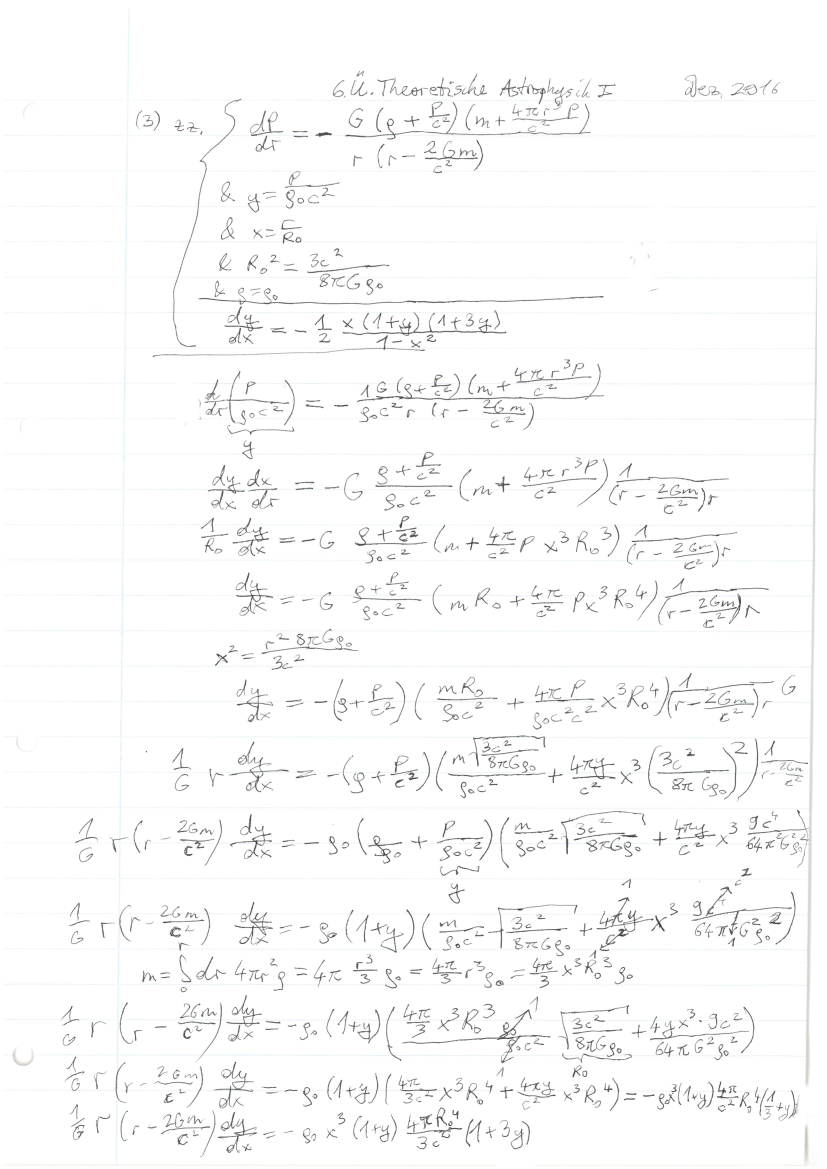 6. Ü. Theoretische Astrophysik I Dez. 2016
(3) zz. { dP/dr = - G (ρ + P/c²) (m + 4πr³P/c²) / r (r - 2Gm/c²)
& y = P/ρ₀c²
& x = r/R₀
& R₀² = 3c²/8πGρ₀
& ρ = ρ₀
dy/dx = - 1/2 x (1+y) (1+3y) / 1-x²
d/dr (P/ρ₀c²) = - 1G (ρ + P/c²) (m + 4πr³P/c²) / ρ₀c² r (r - 2Gm/c²)
y
dy/dx dx/dr = - G ρ + P/c² / ρ₀c² (m + 4πr³P/c²) 1/(r - 2Gm/c²)r
1/R₀ dy/dx = - G ρ + P/c² / ρ₀c² (m + 4π/c² P x³ R₀³) 1/(r - 2Gm/c²)r
dy/dx = - G ρ + P/c² / ρ₀c² (m R₀ + 4π/c² P x³ R₀⁴) 1/(r - 2Gm/c²)r
x² = r² 8πGρ₀ / 3c²
dy/dx = - (ρ + P/c²) (m R₀/ρ₀c² + 4πP/ρ₀c²c² x³ R₀⁴) 1/(r - 2Gm/c²)r G
1/G r dy/dx = - (ρ + P/c²) (m √(3c²/8πGρ₀) / ρ₀c² + 4πy/c² x³ (3c²/8πGρ₀)²) 1/r - 2Gm/c²
1/G r (r - 2Gm/c²) dy/dx = - ρ₀ (ρ/ρ₀ + P/ρ₀c²) (m/ρ₀c² √(3c²/8πGρ₀) + 4πy/c² x³ 9c⁴/64π²G²ρ₀²)
y
1/G r (r - 2Gm/c²) dy/dx = - ρ₀ (1+y) (m/ρ₀c² √(3c²/8πGρ₀) + 4πy/c² x³ 9c⁴/64π²G²ρ₀²) 1 1 c² 1
m = ∫₀ʳ dr 4πr²ρ = 4π r³/3 ρ₀ = 4π/3 r³ρ₀ = 4π/3 x³R₀³ρ₀
1/G r (r - 2Gm/c²) dy/dx = - ρ₀ (1+y) (4π/3 x³ R₀³ ρ₀/ρ₀c² √(3c²/8πGρ₀) + 4yx³·9c²/64πG²ρ₀²) 1 1 R₀
1/G r (r - 2Gm/c²) dy/dx = - ρ₀ (1+y) (4π/3c² x³ R₀⁴ + 4πy/c² x³ R₀⁴) = - ρ₀x³(1+y) 4π/c² R₀⁴ (1/3 + y)
1/G r (r - 2Gm/c²) dy/dx = - ρ₀ x³ (1+y) 4πR₀⁴/3c² (1+3y)